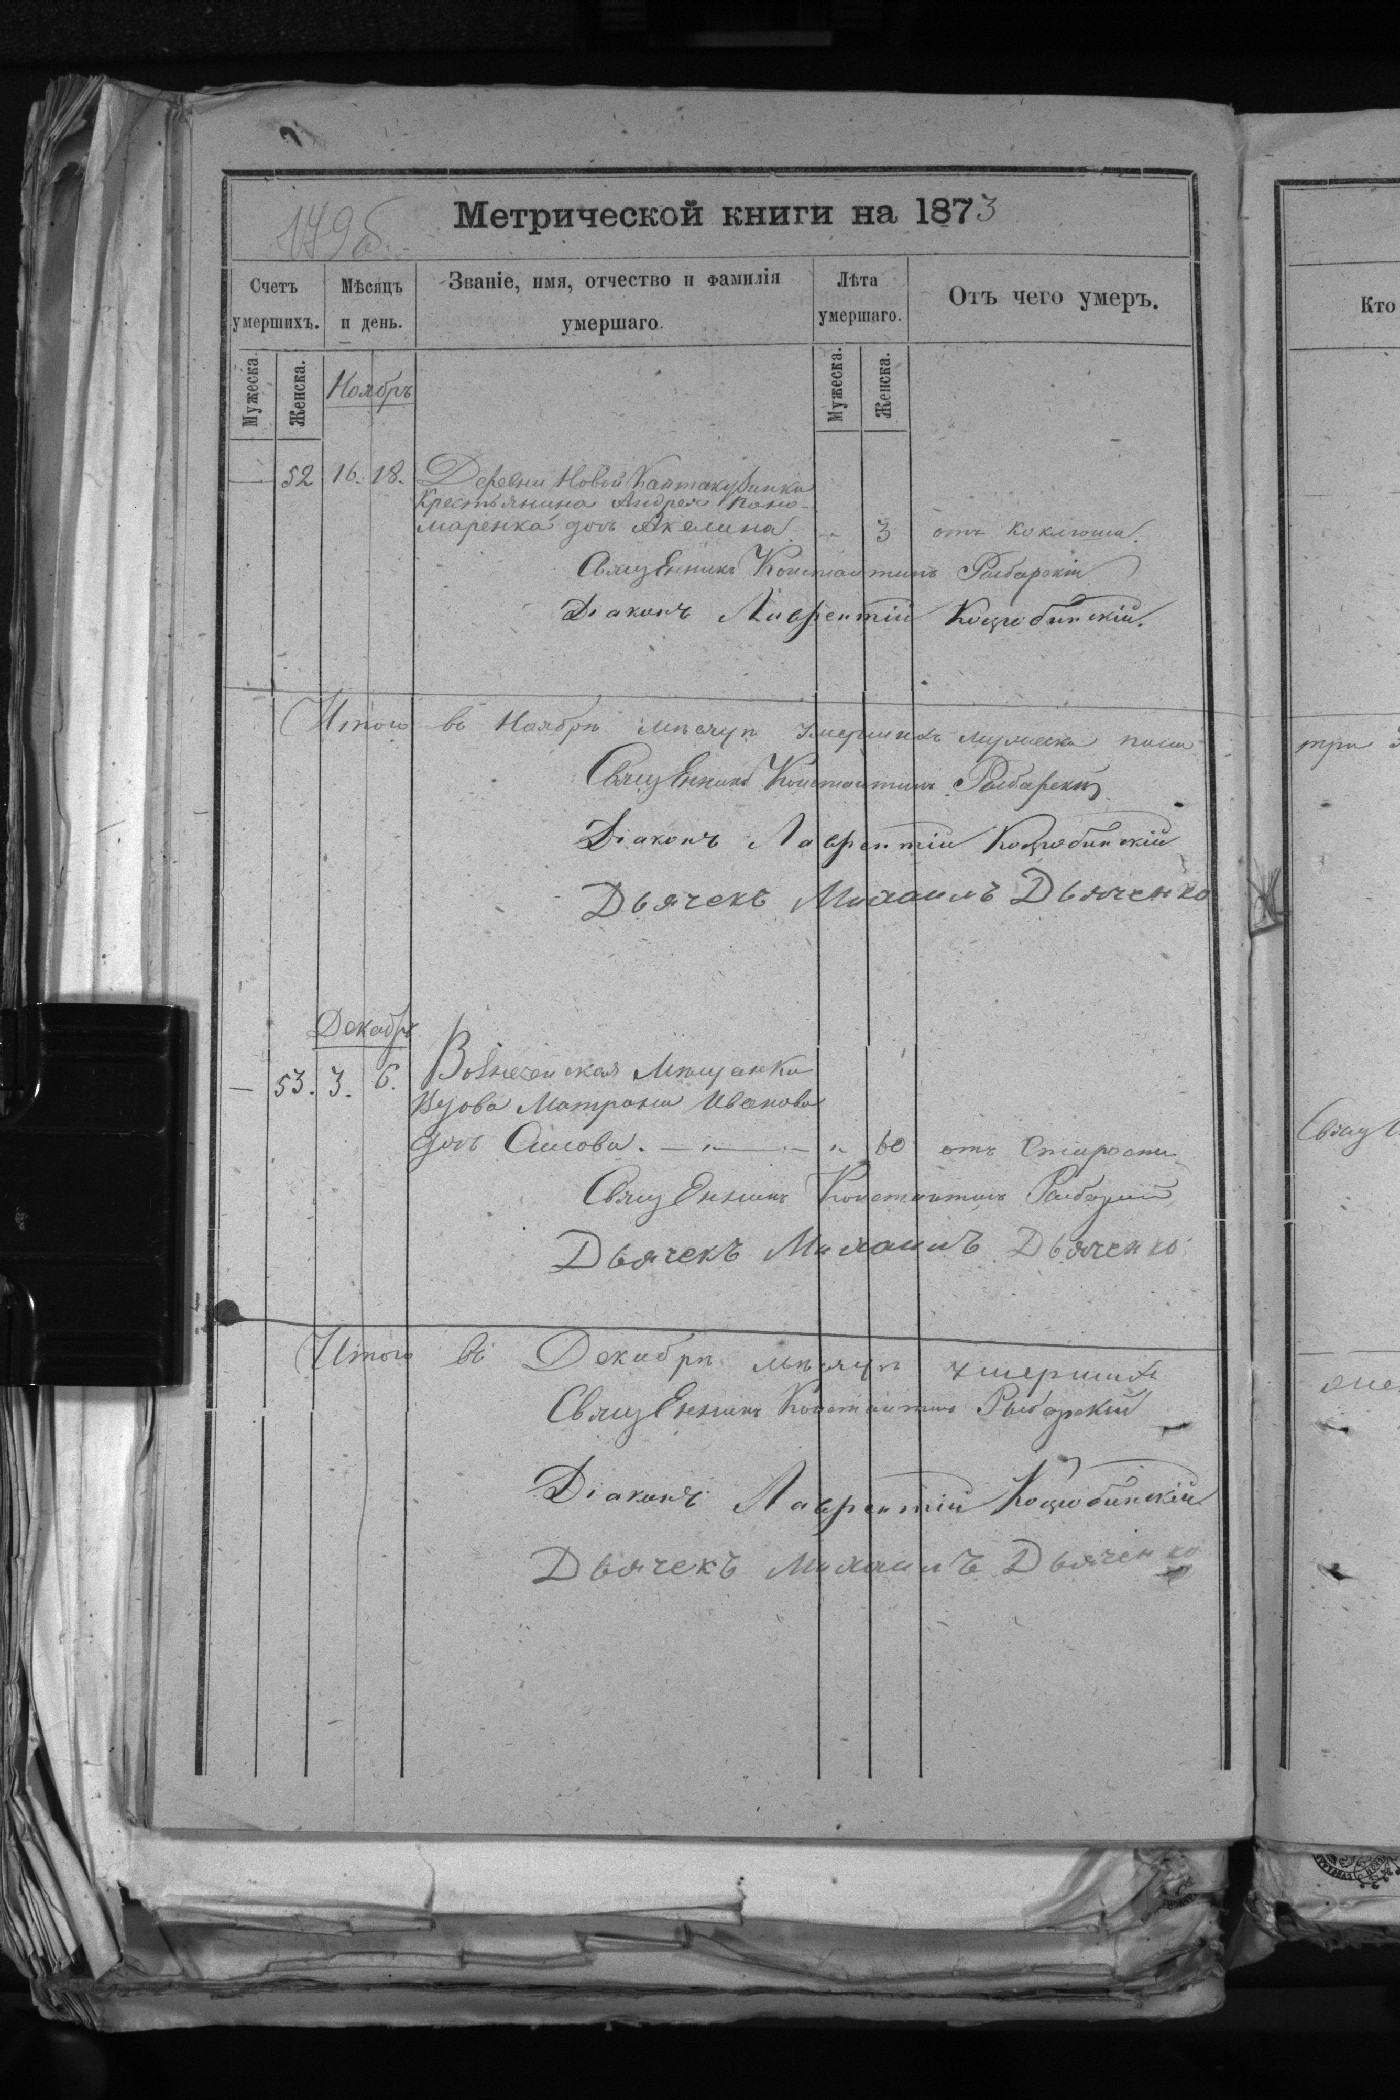 179б.
Метрической книги на 1873
Счетъ умершихъ.
Мѣсяцъ и день.
Званіе, имя, отчество и фамилія умершаго.
Лѣта умершаго.
Отъ чего умеръ.
Кто
Мужеска
Женска.
Ноябрь
Мужеска.
Женска.
— 52 16. 18. Деревни Новой Кантакузинки
Крестьянина Андрея Поно-
маренка дочь Акелина. „ 3 отъ коклюша.
Священникъ Константинъ Рыбарскій
Діаконъ Лаврентій Коцюбинскій.
Итого въ Ноябрѣ мѣсяцѣ умершихъ мужеска пола
три
Священникъ Константинъ Рыбарскій
Діаконъ Лаврентій Коцюбинскій
Дьячекъ Михаилъ Дьяченко
Декабрь
— 53. 3. 6. Вознесенская Мѣщанка
Вдова Матрона Иванова
дочь . — „ — „ 60 отъ Старости
Священникъ Константинъ Рыбарскій
Дьячекъ Михаилъ Дьяченко
Итого въ Декабрѣ мѣсяцѣ умершихъ
Священникъ Константинъ Рыбарскій
Діаконъ Лаврентій Коцюбинскій
Дьячекъ Михаилъ Дьяченко